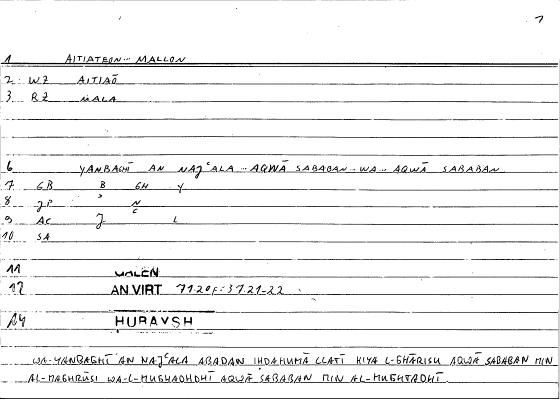 7
1 AITIATEON--- MALLON
2 WZ AITIAŌ
3 RZ MALA
6 YANBAGHĪ AN NAǦʿALA --- AQWĀ SABABAN --- WA --- AQWĀ SABABAN
7 GB B GH Y
8 JP N
9 AC Ǧ L
10 SA
11 GALEN
12 AN VIRT 7120F:3721-22
14 HUBAYSH
WA-YANBAGHĪ AN NAǦʿALA ABADAN IHDAHUMĀ LLATĪ HIYA L-GHĀRISU AQWĀ SABABAN MIN
AL-MAGHRŪSI WA-L-MUGHADHDHĪ AQWĀ SABABAN MIN AL-MUGHTADHĪ